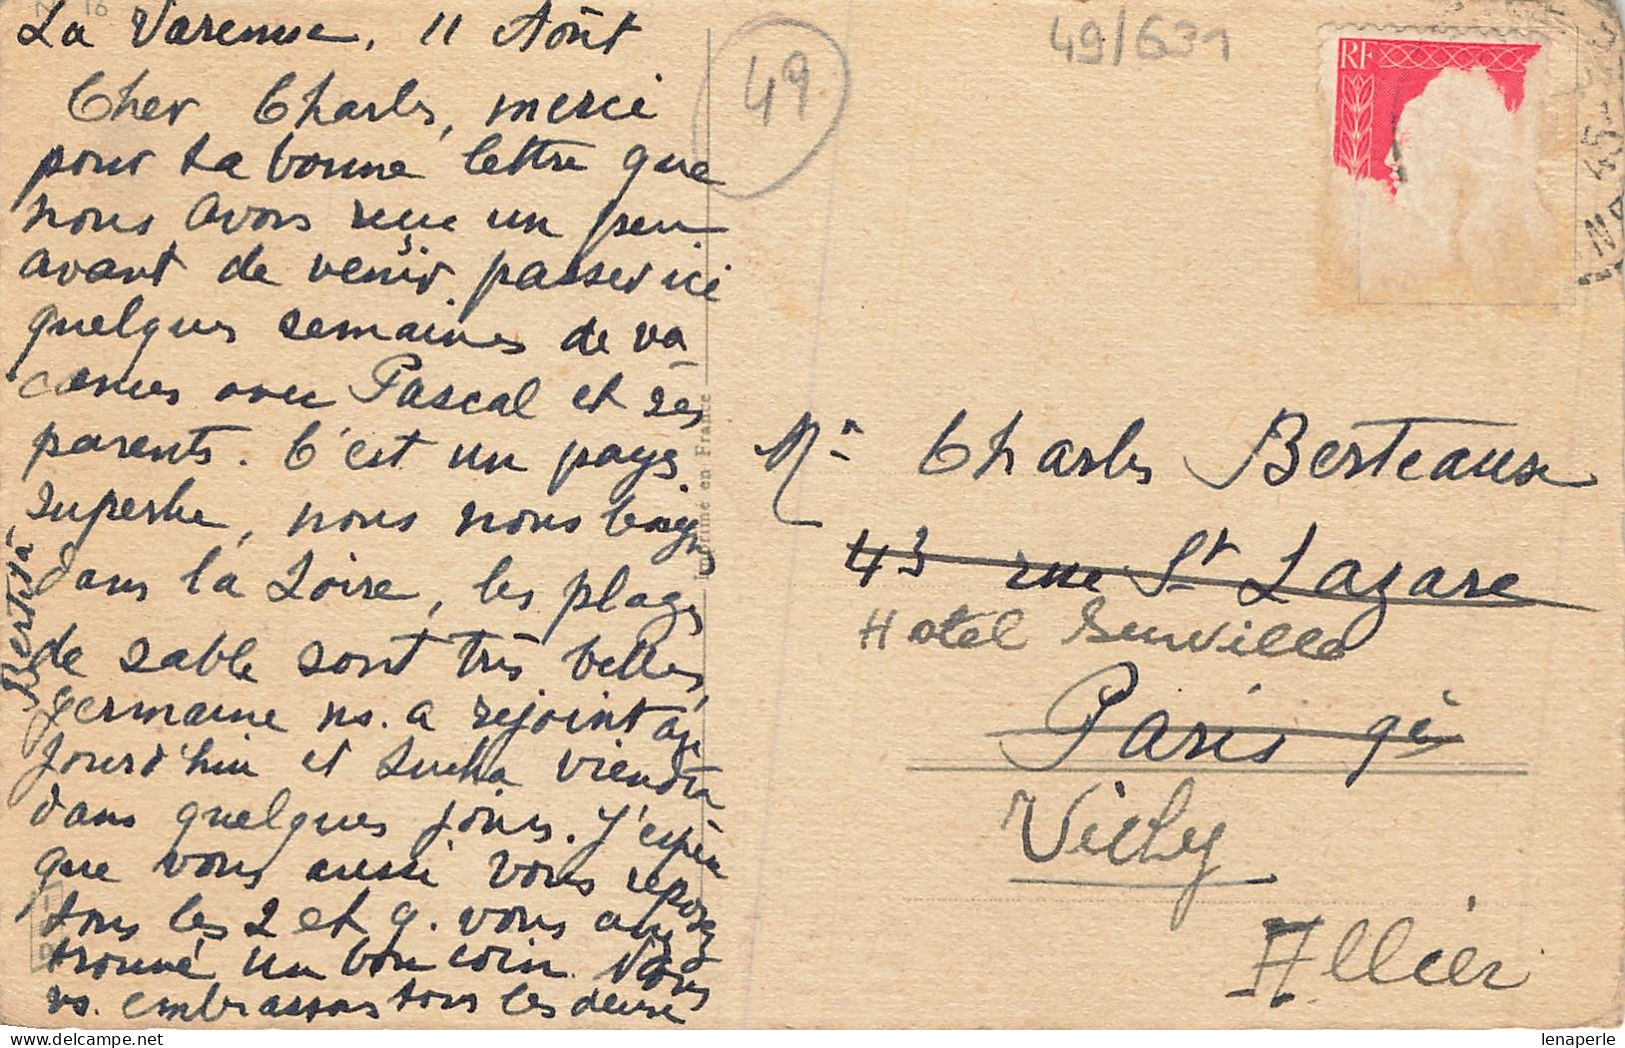 La Varenne, 11 Août
Cher Charles, merci
pour ta bonne lettre que
nous avons reçue un peu
avant de venir passer ici
quelques semaines de va
cances avec Pascal et ses
parents. C'est un pays
superbe, nous nous baig
dans la Loire, les plages
de sable sont très belles,
germaine ns. a rejoint au
jourd'hui et viendra
dans quelques jours. J'espère
que vous aussi vous reposez
tous les 2 et q. vous avez
trouvé un bon coin. Nous
vs. embrassons tous les deux
49
49/631
RF
45
Imprimé en France
Mr Charles Berteaux
43 rue St Lazare
Hotel Surville
Paris 9è
Vichy
Allier
lenaperle